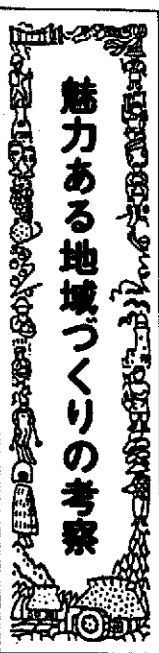 魅力ある地域づくりの考察